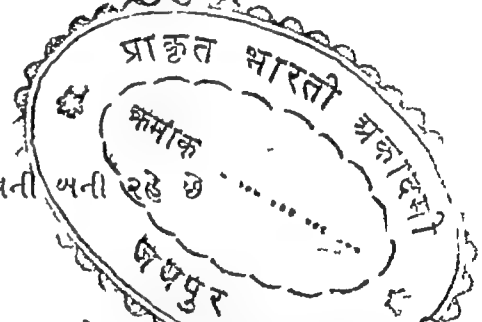 प्राकृत भारती अकादमी
क्रमांक
બની રહે છે
जयपुर